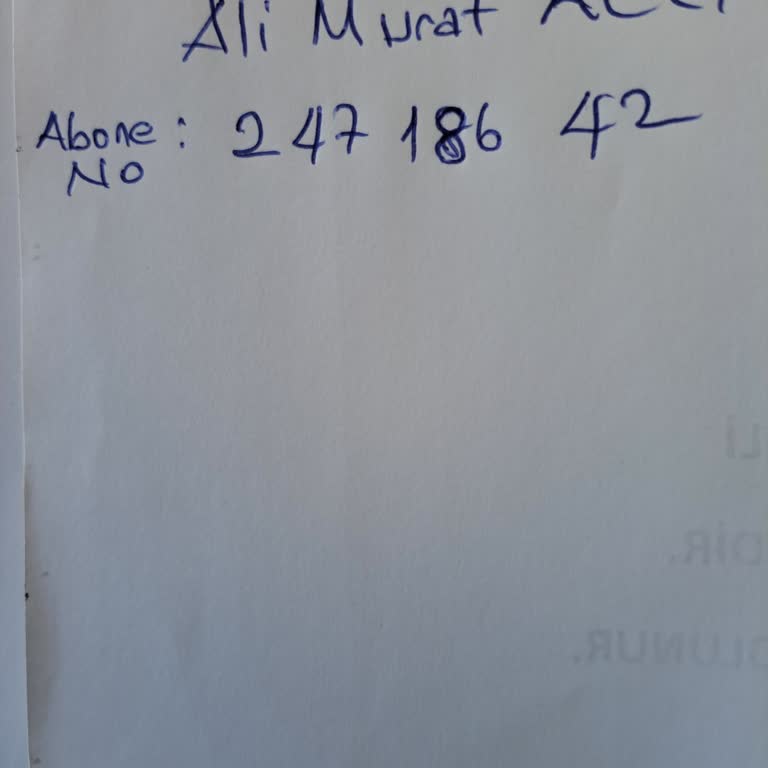 Ali Murat
Abone : 247 186 42
No